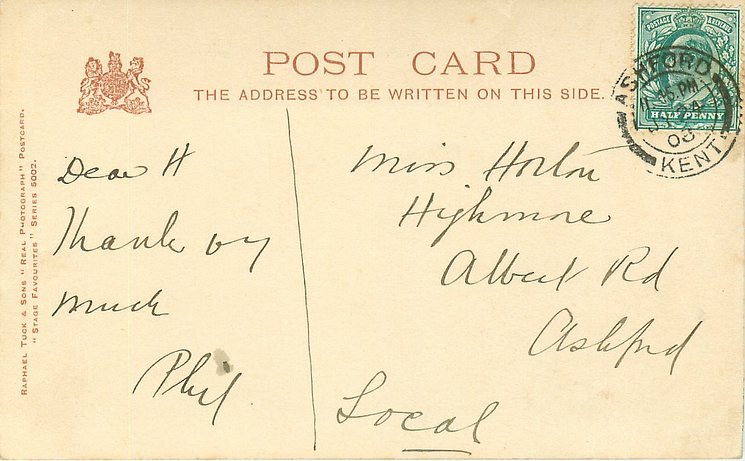 POST CARD
THE ADDRESS TO BE WRITTEN ON THIS SIDE.
POSTAGE REVENUE
HALF PENNY
ASHFORD
PM
03
KENT
RAPHAEL TUCK & SONS "REAL PHOTOGRAPH" POSTCARD.
"STAGE FAVOURITES" SERIES 5002.
Dear H
Thank oy
much
Phil
Miss Horton
Highmore
Albert Rd
Ashford
Local